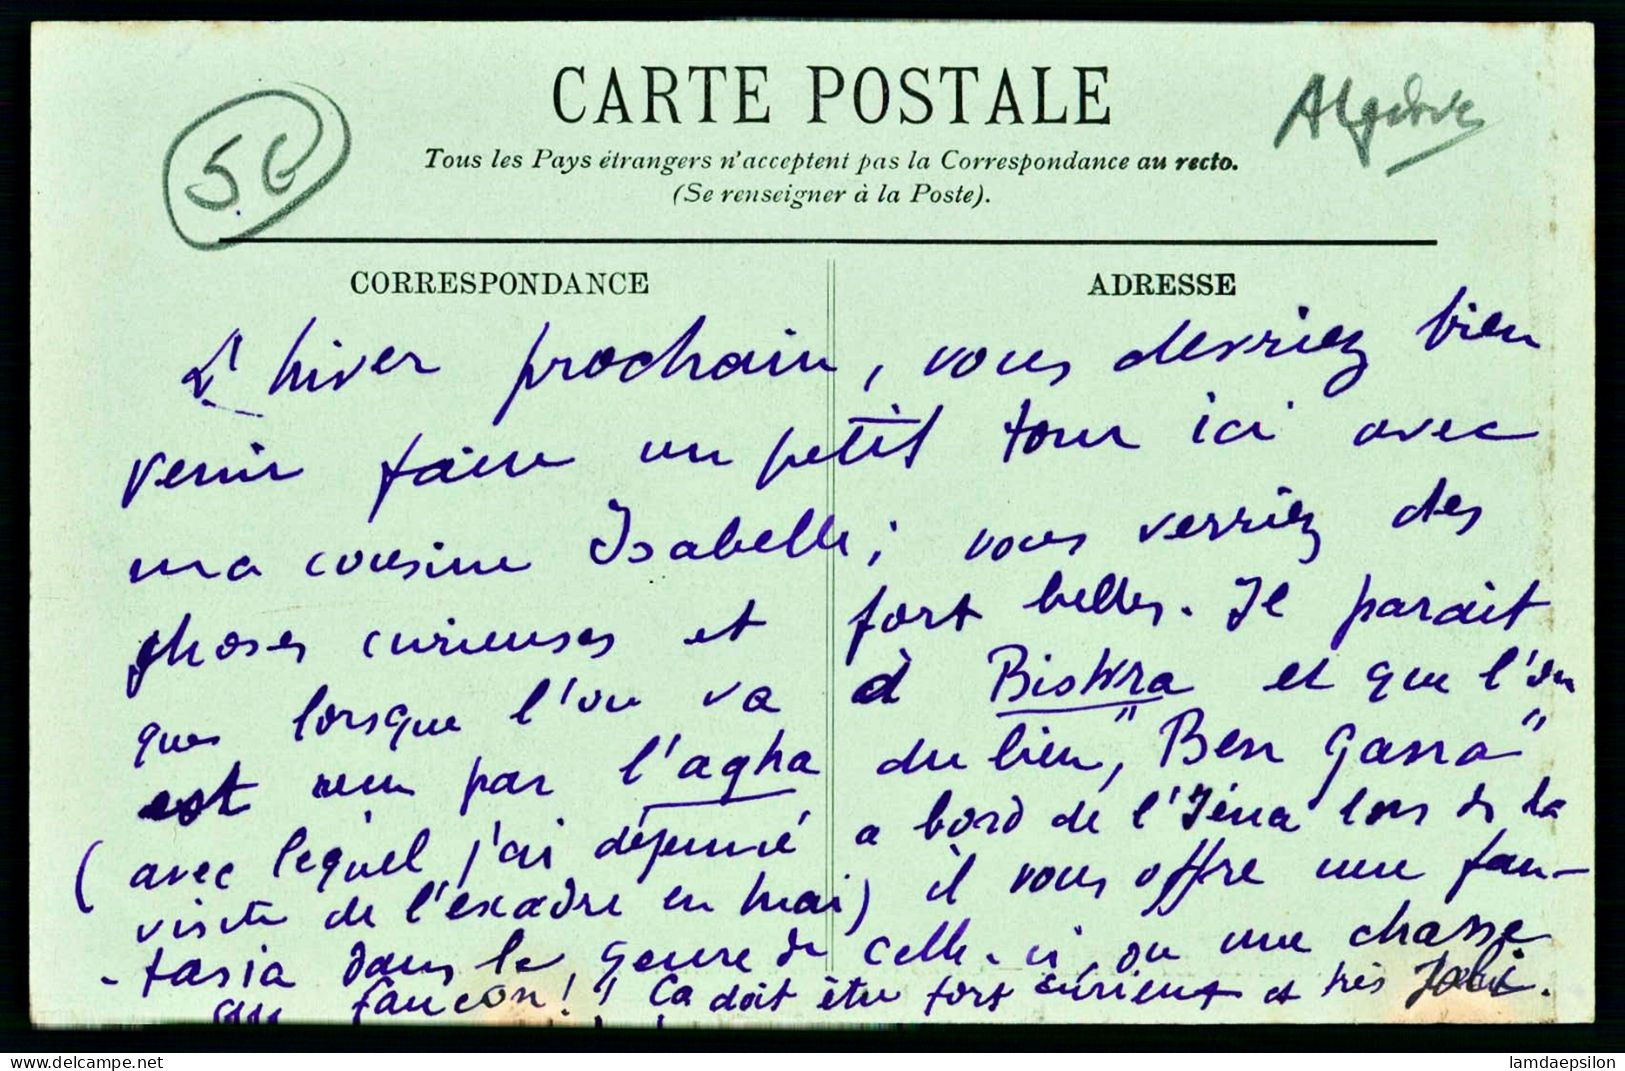 CARTE POSTALE
Tous les Pays étrangers n'acceptent pas la Correspondance au recto.
(Se renseigner à la Poste).
5G
Algérie
CORRESPONDANCE
ADRESSE
L'hiver prochain, vous devriez bien
venir faire un petit tour ici avec
ma cousine Isabelle; vous verriez des
choses curieuses et fort belles. Il parait
que lorsque l'on va à Biskra et que l'on
est reçu par l'agha du lieu, "Ben Gana"
(avec lequel j'ai déjeuné a bord de l'Iéna lors de la
visite de l'escadre en mai) il vous offre une fan-
-tasia dans le genre de celle-ci, ou une chasse
au faucon!! Ca doit être fort curieux et très joli.
www.delcampe.net
lamdaepsilon